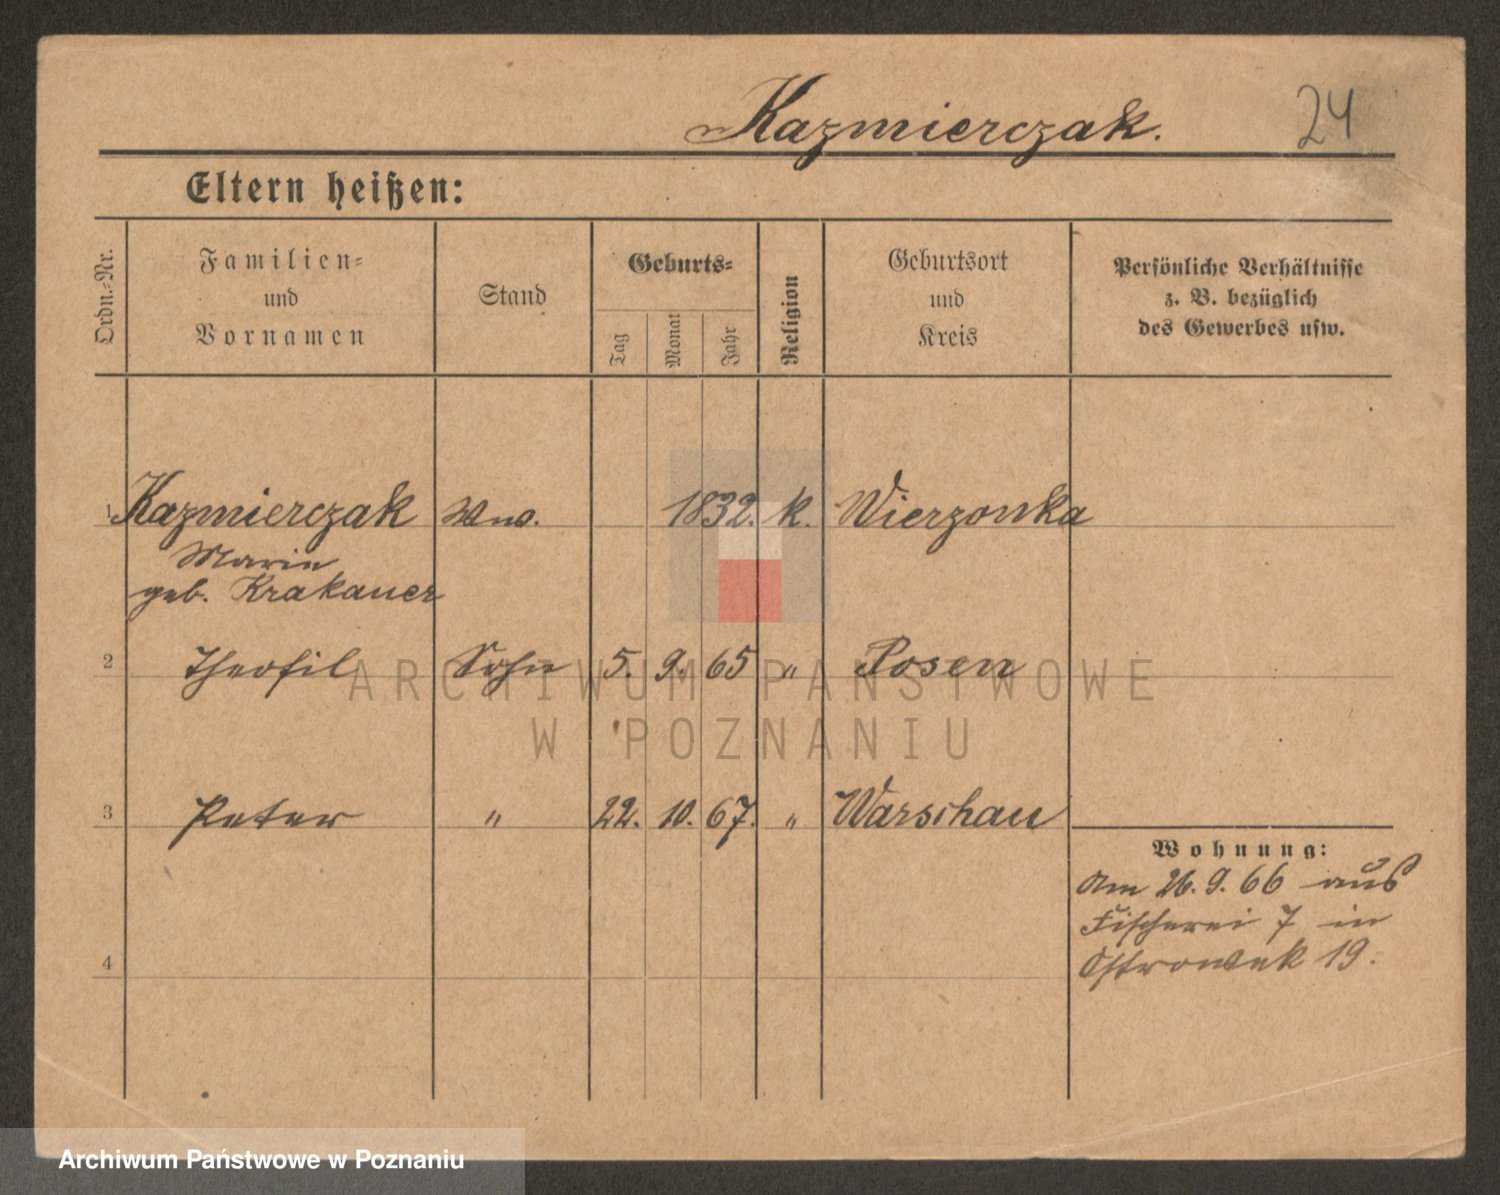 Kazmierczak.
24
Eltern heißen:
Ordn.-Nr.
Familien-
und
Vornamen
Stand
Geburts-
Tag
Monat
Jahr
Religion
Geburtsort
und
Kreis
Persönliche Verhältnisse
z. B. bezüglich
des Gewerbes usw.
1 Kazmierczak Ww. 1832. k. Wierzonka
Marie
geb. Krakauer
2 Theofil Sohn 5. 9. 65 " Posen
ARCHIWUM PAŃSTWOWE
W POZNANIU
3 Peter " 22. 10. 67. " Warschau
Wohnung:
Am 26. 9. 66 aus
Fischerei 7 in
Ostrowek 19.
4
Archiwum Państwowe w Poznaniu